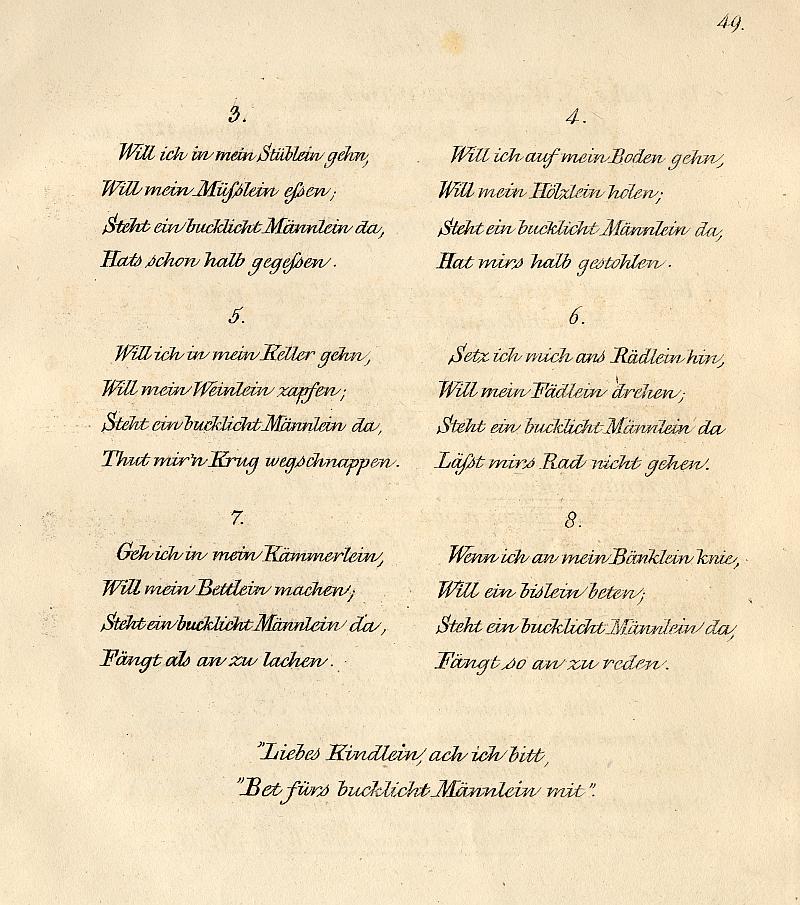 49.
3.
Will ich in mein Stüblein gehn,
Will mein Müßlein eßen;
Steht ein bucklicht Männlein da,
Hats schon halb gegeßen.
4.
Will ich auf mein Boden gehn,
Will mein Hölzlein holen;
Steht ein bucklicht Männlein da,
Hat mirs halb gestohlen.
5.
Will ich in mein Keller gehn,
Will mein Weinlein zapfen;
Steht ein bucklicht Männlein da,
Thut mir'n Krug wegschnappen.
6.
Setz ich mich ans Rädlein hin,
Will mein Fädlein drehen;
Steht ein bucklicht Männlein da
Läßt mirs Rad nicht gehen.
7.
Geh ich in mein Kämmerlein,
Will mein Bettlein machen;
Steht ein bucklicht Männlein da,
Fängt als an zu lachen.
8.
Wenn ich an mein Bänklein knie,
Will ein bislein beten;
Steht ein bucklicht Männlein da,
Fängt so an zu reden.
"Liebes Kindlein, ach ich bitt,
"Bet fürs bucklicht Männlein mit".